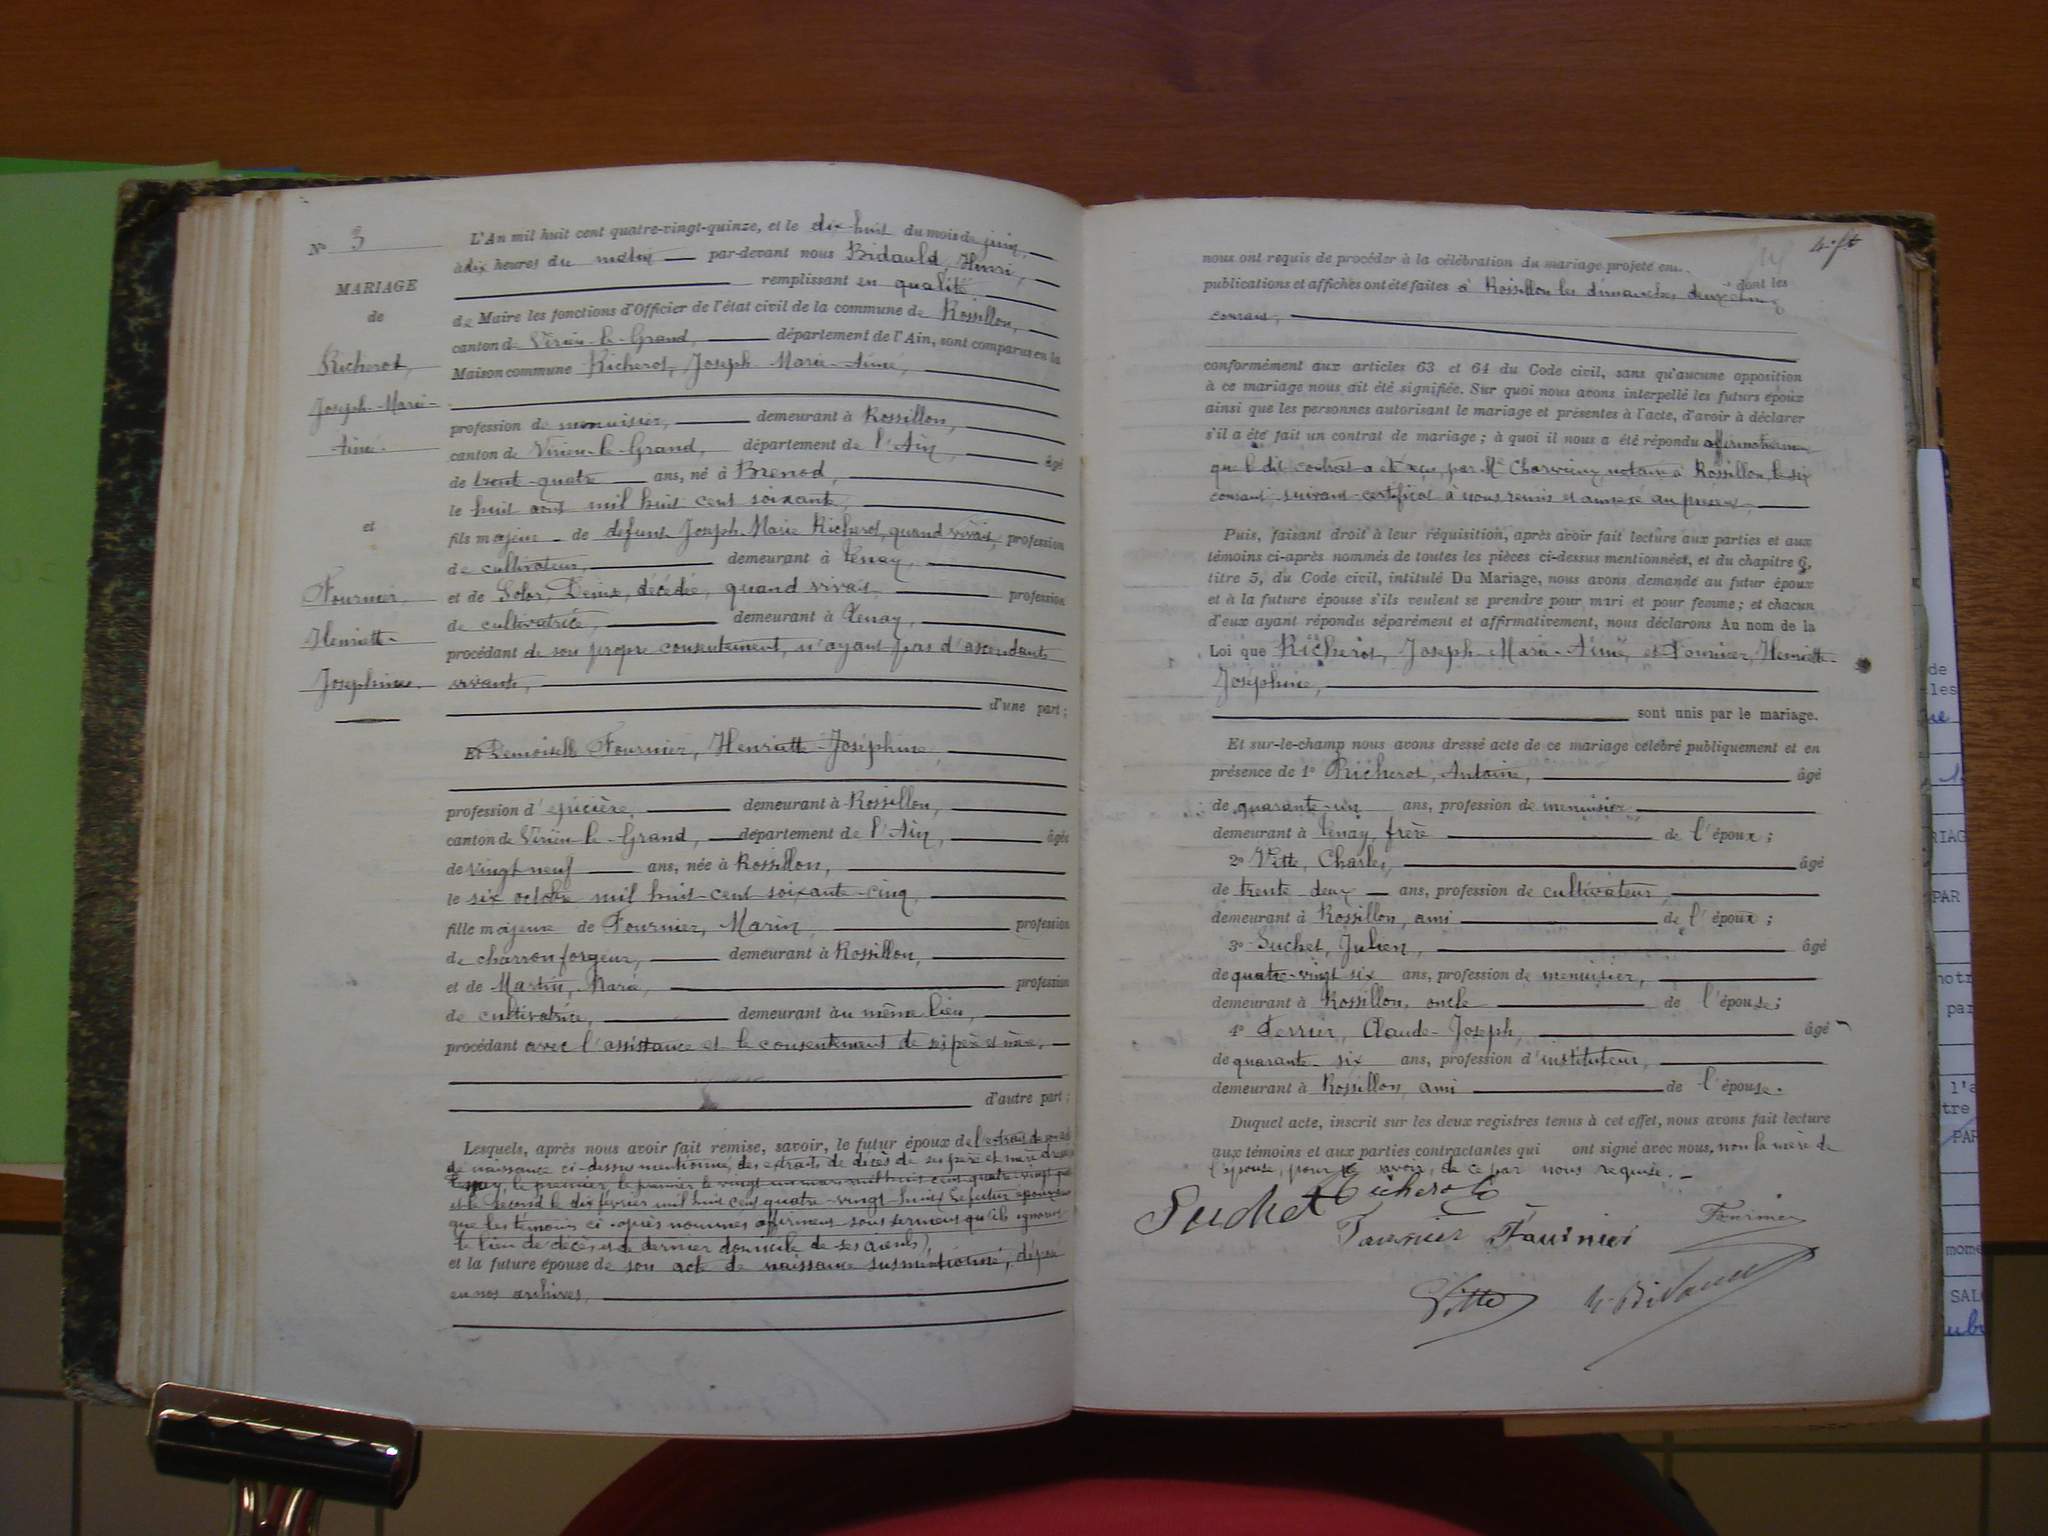 N° 3
MARIAGE
de
Richerot,
Joseph-Marie-
Aimé.
et
Fournier,
Henriette-
Joséphine.
L'An mil huit cent quatre-vingt-quinze, et le dix-huit du mois de juin,
à dix heures du matin par-devant nous Bidauld, Henri,
remplissant en qualité
de Maire les fonctions d'Officier de l'état civil de la commune de Rossillon,
canton de Virieu-le-Grand, département de l'Ain, sont comparus en la
Maison commune Richerot, Joseph-Marie-Aimé,
profession de menuisier, demeurant à Rossillon,
canton de Virieu-le-Grand, département de l'Ain, âgé
de trent-quatre ans, né à Brenod,
le huit août mil huit cent soixante,
fils majeur de défunt Joseph Marie Richerot, quand vivait, profession
de cultivateur, demeurant à Tenay,
et de Denise, décédée, quand vivait profession
de cultivatrice, demeurant à Tenay,
procédant de son propre consentement, n'ayant pas d'ascendants
vivants,
d'une part ;
Et Demoiselle Fournier, Henriette-Joséphine,
profession d'épicière, demeurant à Rossillon,
canton de Virieu-le-Grand, département de l'Ain, âgée
de vingt neuf ans, née à Rossillon,
le six octobre mil huit-cent soixante-cinq,
fille majeure de Fournier, Marin, profession
de charron forgeur, demeurant à Rossillon,
et de Martin, Marie, profession
de cultivatrice, demeurant au même lieu,
procédant avec l'assistance et le consentement de ses père et mère,
d'autre part ;
Lesquels, après nous avoir fait remise, savoir, le futur époux de l'extrait de son acte
de naissance ci-dessus mentionné, des extraits de décès de ses père et mère
Tenay, le premier le vingt un mars mil huit cent quatre-vingt
et le second le dix février mil huit cent quatre-vingt-huit, le futur époux
que les témoins ci-après nommés affirment sous serment qu'ils ignorent
le lieu de décès et de dernier domicile de ses aïeuls,
et la future épouse de son acte de naissance susmentionné, déposé
en nos archives,
nous ont requis de procéder à la célébration du mariage projeté
dont les
publications et affiches ont été faites à Rossillon les dimanches deux et
courant,
conformément aux articles 63 et 64 du Code civil, sans qu'aucune opposition
à ce mariage nous ait été signifiée. Sur quoi nous avons interpellé les futurs époux
ainsi que les personnes autorisant le mariage et présentes à l'acte, d'avoir à déclarer
s'il a été fait un contrat de mariage ; à quoi il nous a été répondu affirmativement
que le dit contrat a été reçu par Me notaire à Rossillon, le six
courant suivant certificat à nous remis et annexé au présent.
Puis, faisant droit à leur réquisition, après avoir fait lecture aux parties et aux
témoins ci-après nommés de toutes les pièces ci-dessus mentionnées, et du chapitre 6,
titre 5, du Code civil, intitulé Du Mariage, nous avons demandé au futur époux
et à la future épouse s'ils veulent se prendre pour mari et pour femme ; et chacun
d'eux ayant répondu séparément et affirmativement, nous déclarons Au nom de la
Loi que Richerot, Joseph-Marie-Aimé, et Fournier, Henriette-
Joséphine,
sont unis par le mariage.
Et sur-le-champ nous avons dressé acte de ce mariage célébré publiquement et en
présence de 1° Richerot, Antoine, âgé
de quarante-un ans, profession de menuisier,
demeurant à Tenay, frère de l'époux ;
2° Vitte, Charles, âgé
de trente-deux ans, profession de cultivateur,
demeurant à Rossillon, ami de l'époux ;
3° Suchet, Julien, âgé
de quatre-vingt six ans, profession de menuisier,
demeurant à Rossillon, oncle de l'épouse ;
4° Perrier, Claude-Joseph, âgé
de quarante-six ans, profession d'instituteur,
demeurant à Rossillon, ami de l'épouse.
Duquel acte, inscrit sur les deux registres tenus à cet effet, nous avons fait lecture
aux témoins et aux parties contractantes qui ont signé avec nous, non la mère de
l'épouse, pour ne savoir, de ce par nous requise.
Suchet Richerot
Fournier Fournier Fournier
Vitte H. Bidauld